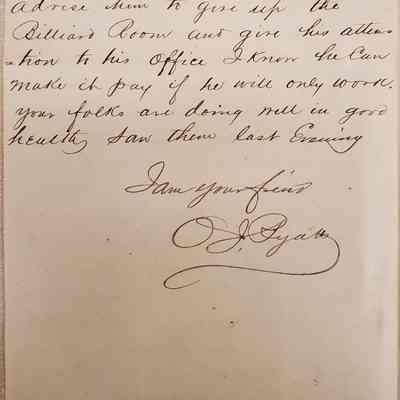 advise him to give up the
Billiard Room and give his atten
-tion to his Office I know he Can
make it pay if he will only work.
your folks are doing well in good
health, saw them last Evening
I am your friend
O J. Pyatt